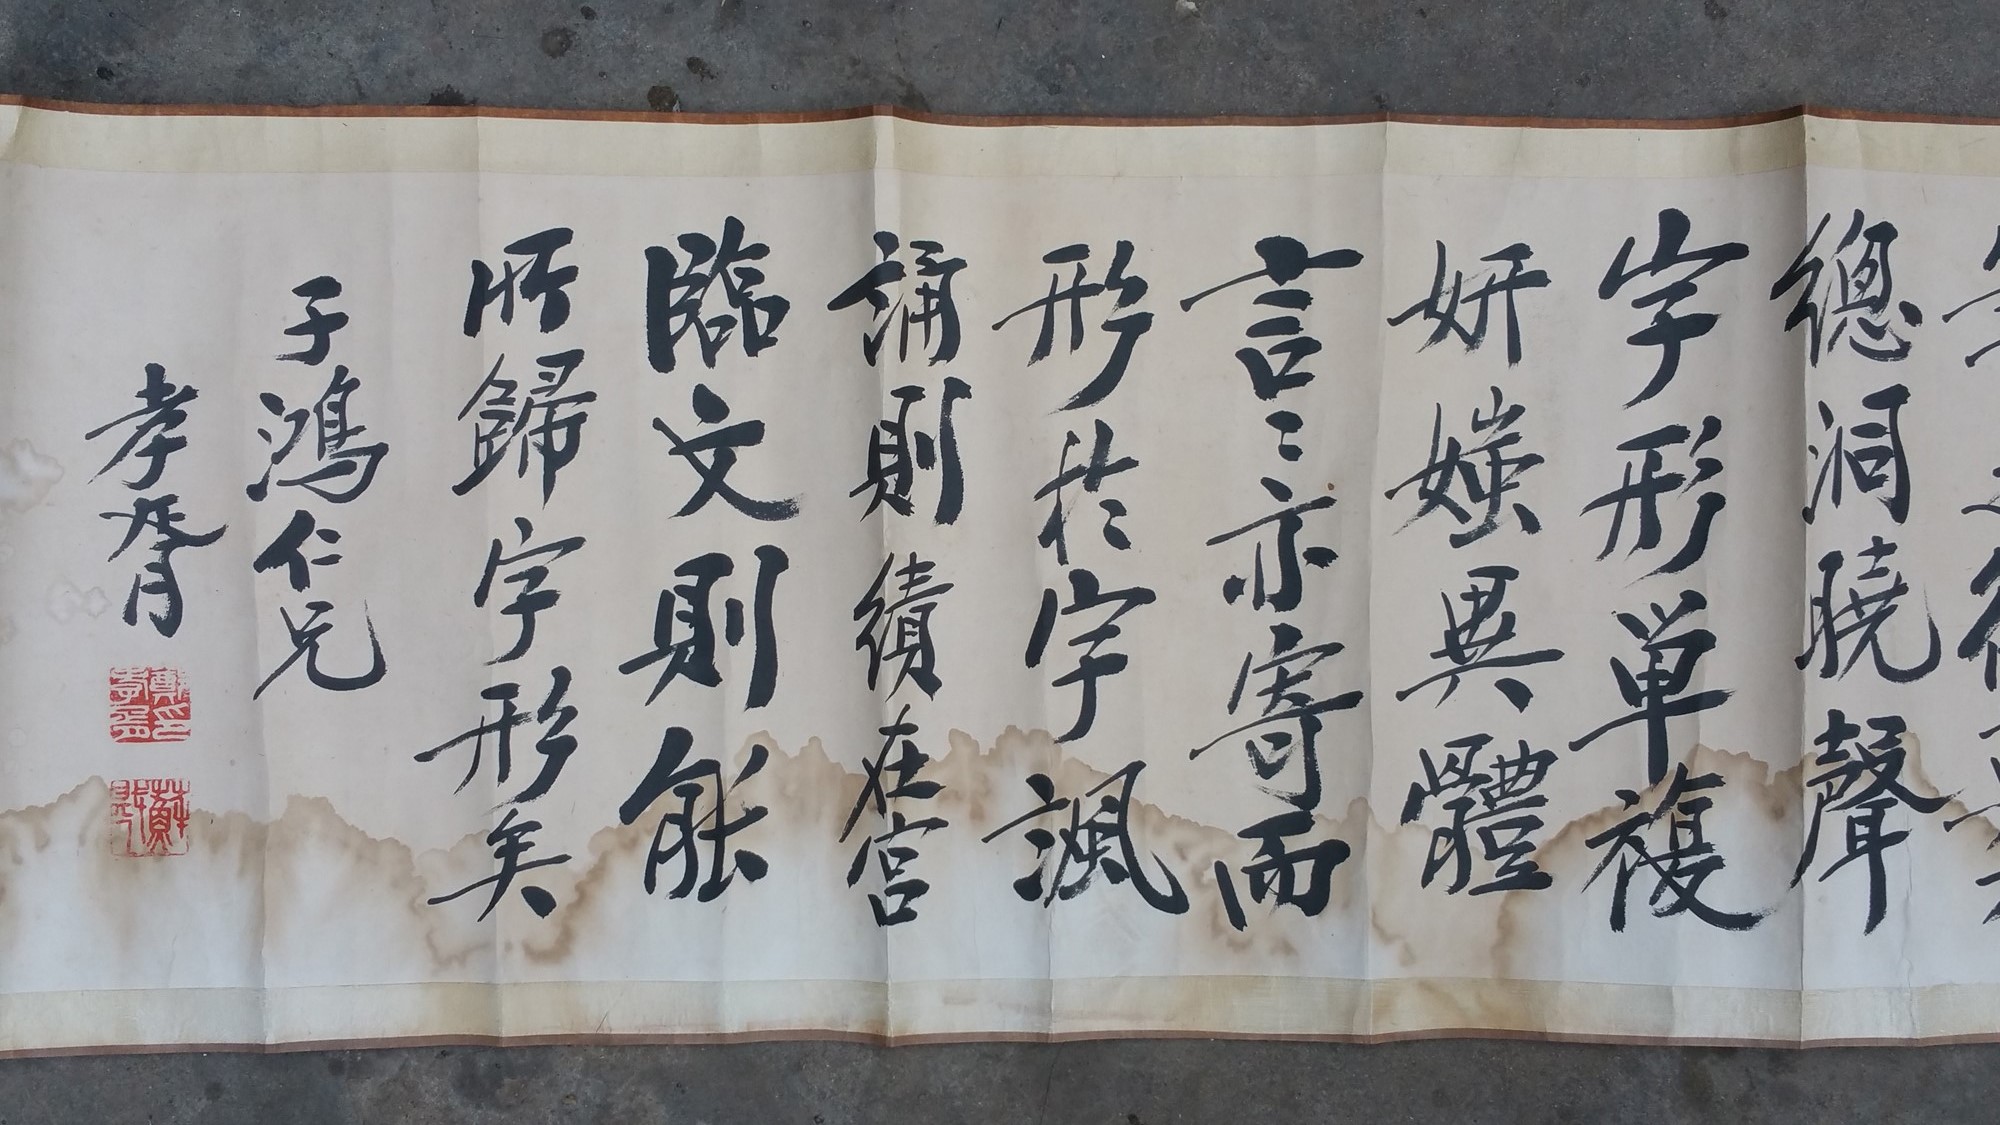 總洞曉聲
字形単複
妍媸異體
言〻亦寄而
形於字諷
誦則績在宮
臨文則能
所歸字形矣
子鴻仁兄
孝胥
鄭印孝胥
蘇戡